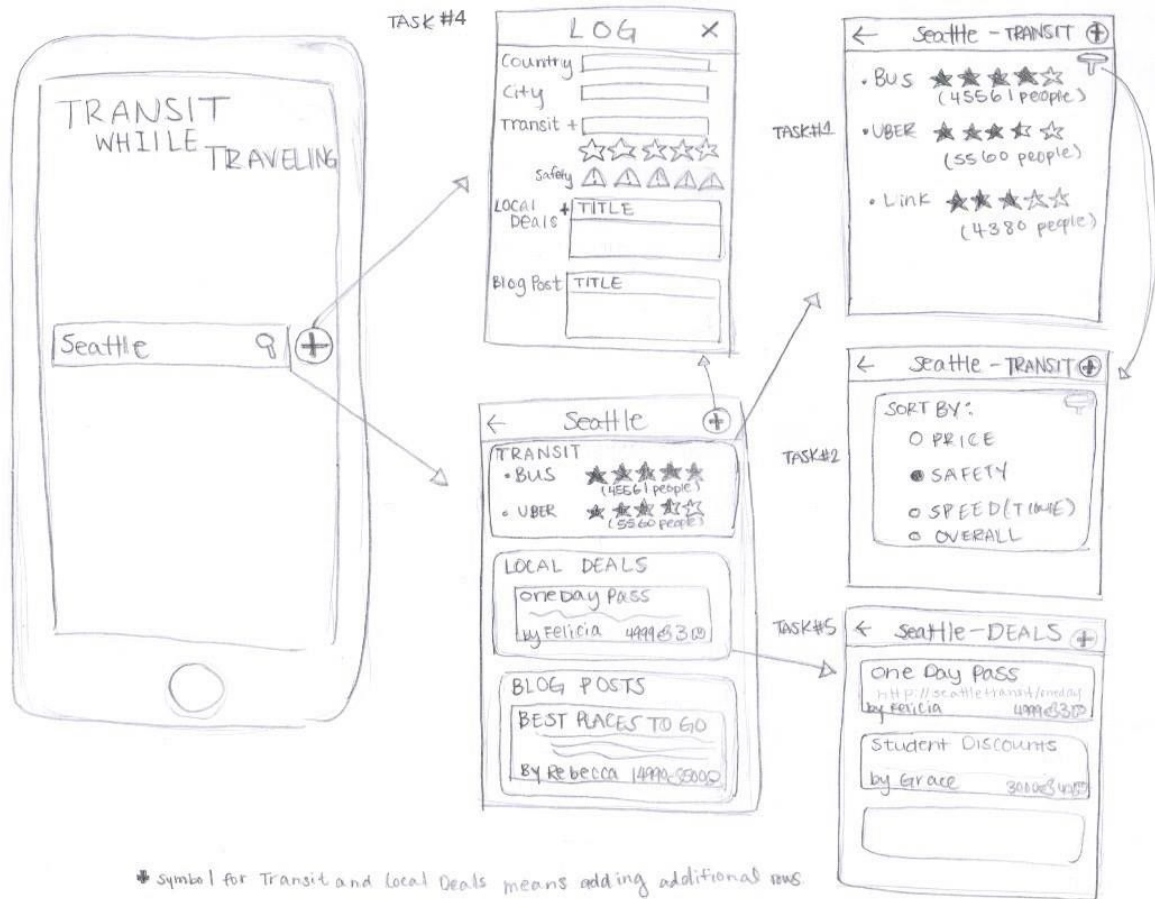 TRANSIT
WHIILE
TRAVELING
Seattle
TASK #4
LOG X
Country
City
Transit +
Safety
LOCAL + TITLE
Deals
Blog Post TITLE
← Seattle +
TRANSIT
• BUS
(45561 people)
• UBER
(5560 people)
LOCAL DEALS
One Day Pass
by Felicia 4999 3
BLOG POSTS
BEST PLACES TO GO
By Rebecca
TASK#1
← Seattle - TRANSIT +
• BUS
(45561 people)
• UBER
(5560 people)
• Link
(4380 people)
TASK#2
← Seattle - TRANSIT +
SORT BY:
○ PRICE
● SAFETY
○ SPEED(TIME)
○ OVERALL
TASK#5
← Seattle - DEALS +
One Day Pass
http://seattletransit/oneday
by Felicia 4999 3
Student Discounts
by Grace
+ symbol for Transit and Local Deals means adding additional rows